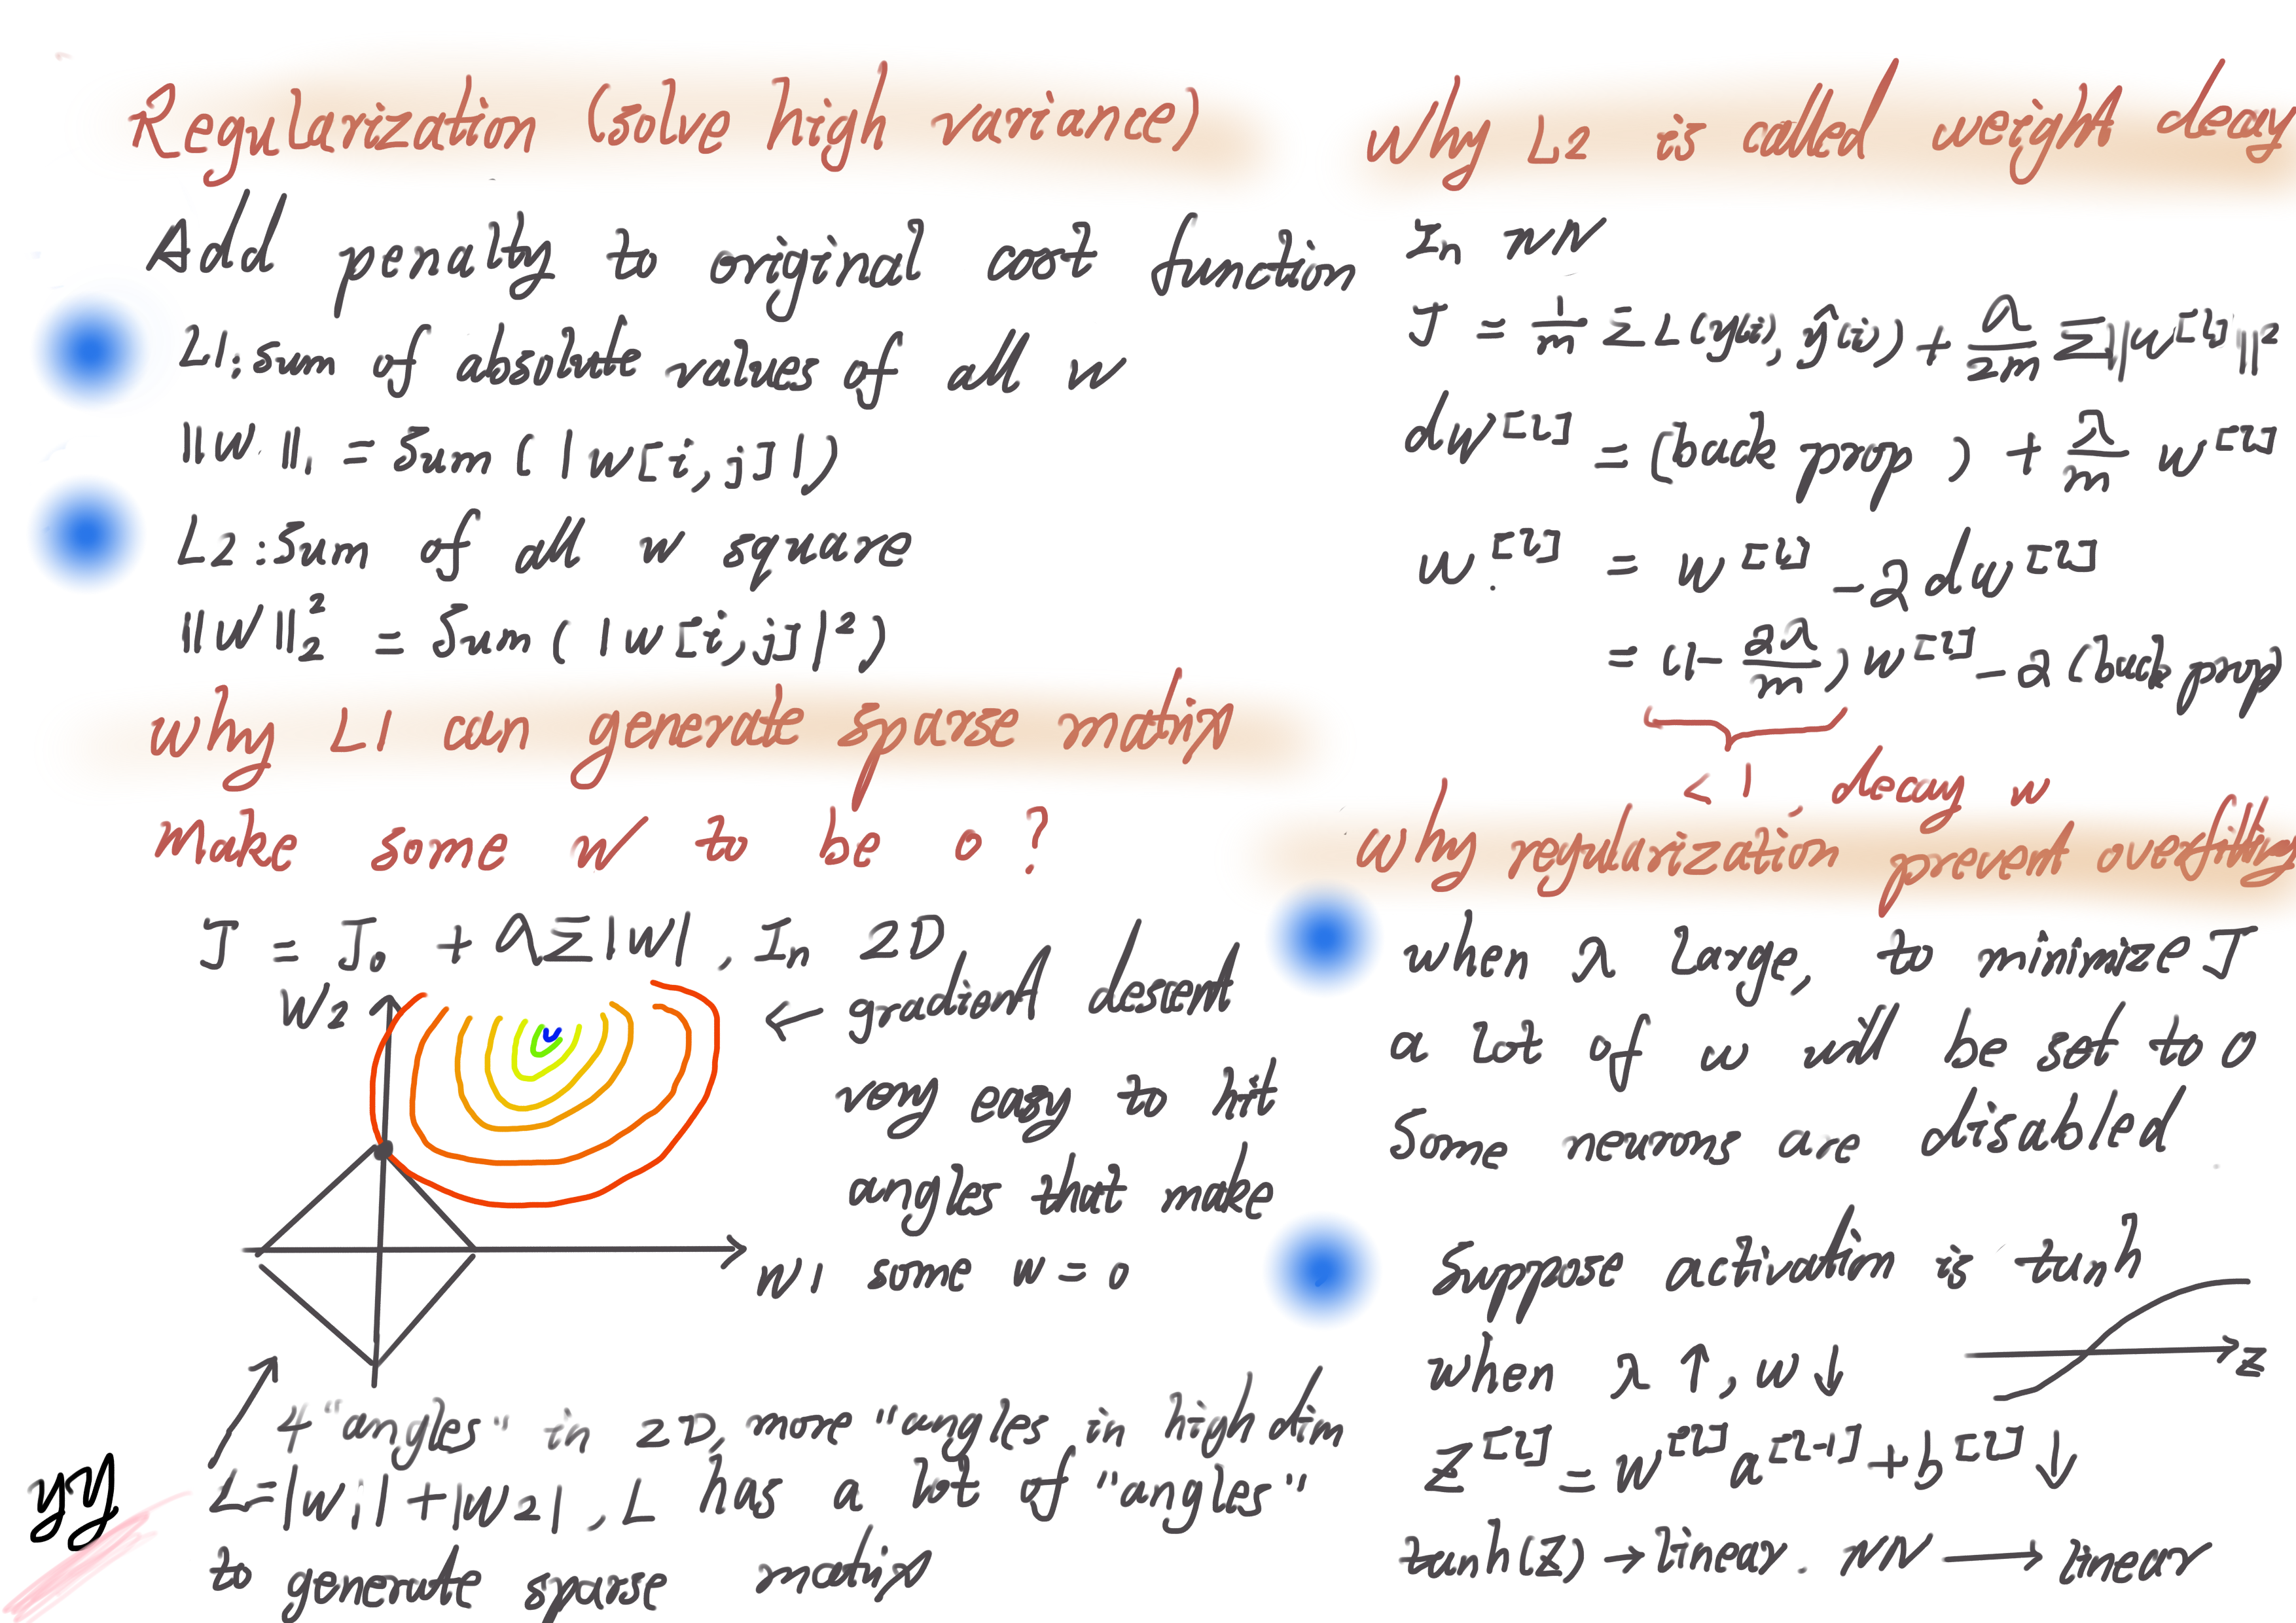 Regularization (solve high variance)
Add penalty to original cost function
L1: Sum of absolute values of all w
||W||₁ = Sum ( |w[i,j]| )
L2: Sum of all w square
||W||₂² = Sum ( |w[i,j]|² )
why L1 can generate sparse matrix
make some w to be 0 ?
J = J₀ + λΣ|W| , In 2D
W2
← gradient descent
very easy to hit
angles that make
w1 some w = 0
4 "angles" in 2D, more "angles in high dim
L=|w₁|+|w2| , L has a lot of "angles"
to generate sparse matrix
yy
Why L2 is called weight decay
In NN
J = 1/m Σ L(y(i), ŷ(i)) + λ/2m Σ||w[l]||²
dw[l] = (back prop) + λ/m w[l]
w[l] = w[l] - α dw[l]
= (1- αλ/m) w[l] - α (back prop)
< 1 , decay w
why regularization prevent overfitting
when λ large, to minimize J
a lot of w will be set to 0
Some neurons are disabled
Suppose activation is tanh
when λ ↑, w ↓
z
z[l] = w[l] a[l-1] + b[l] ↓
tanh(z) → linear. NN → linear